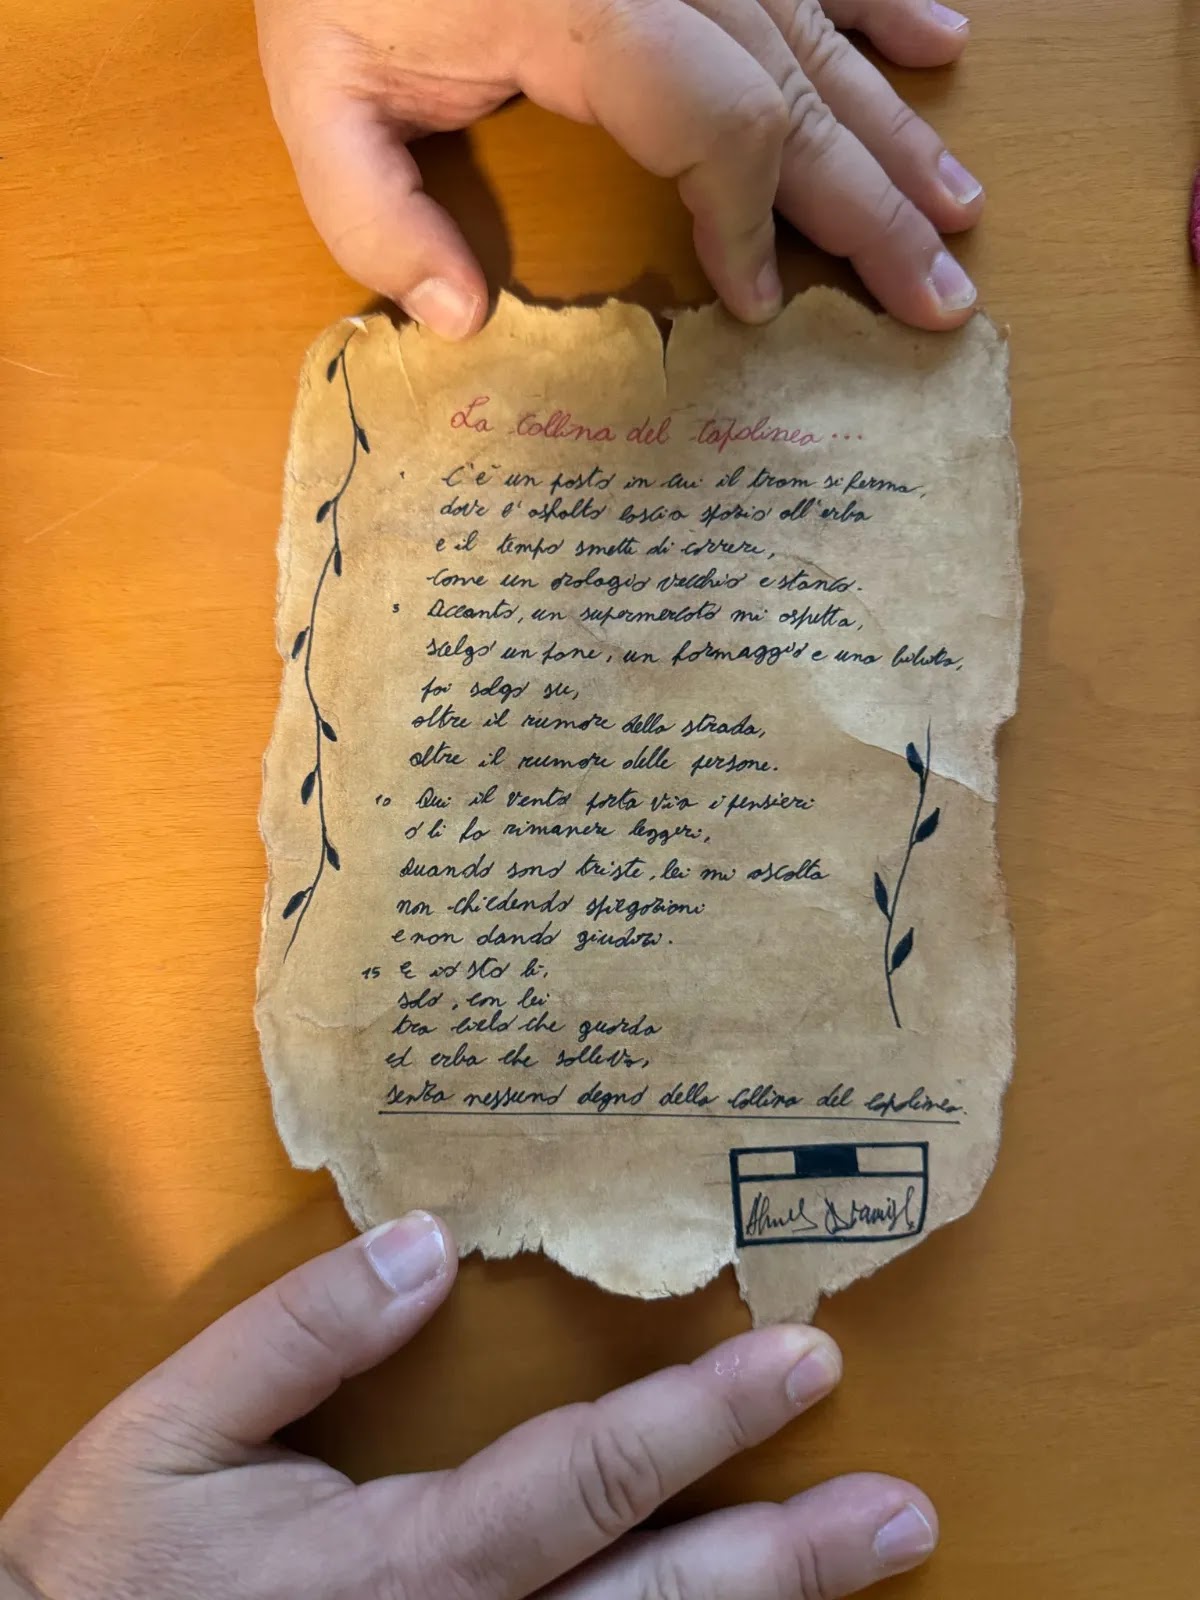 La Collina del Capolinea...
1 C'è un posto in cui il tram si ferma,
dove l'asfalto lascia spazio all'erba
e il tempo smette di correre,
come un orologio vecchio e stanco.
5 Accanto, un supermercato mi aspetta,
scelgo un pane, un formaggio e una bibita,
poi salgo su,
oltre il rumore della strada,
oltre il rumore delle persone.
10 Qui il vento porta via i pensieri
o li fa rimanere leggeri,
Quando sono triste, lei mi ascolta
non chiedendo spiegazioni
e non dando giudizi.
15 E io sto lì,
solo, con lei
tra cielo che guarda
ed erba che solleva,
senza nessuno degno della Collina del capolinea.